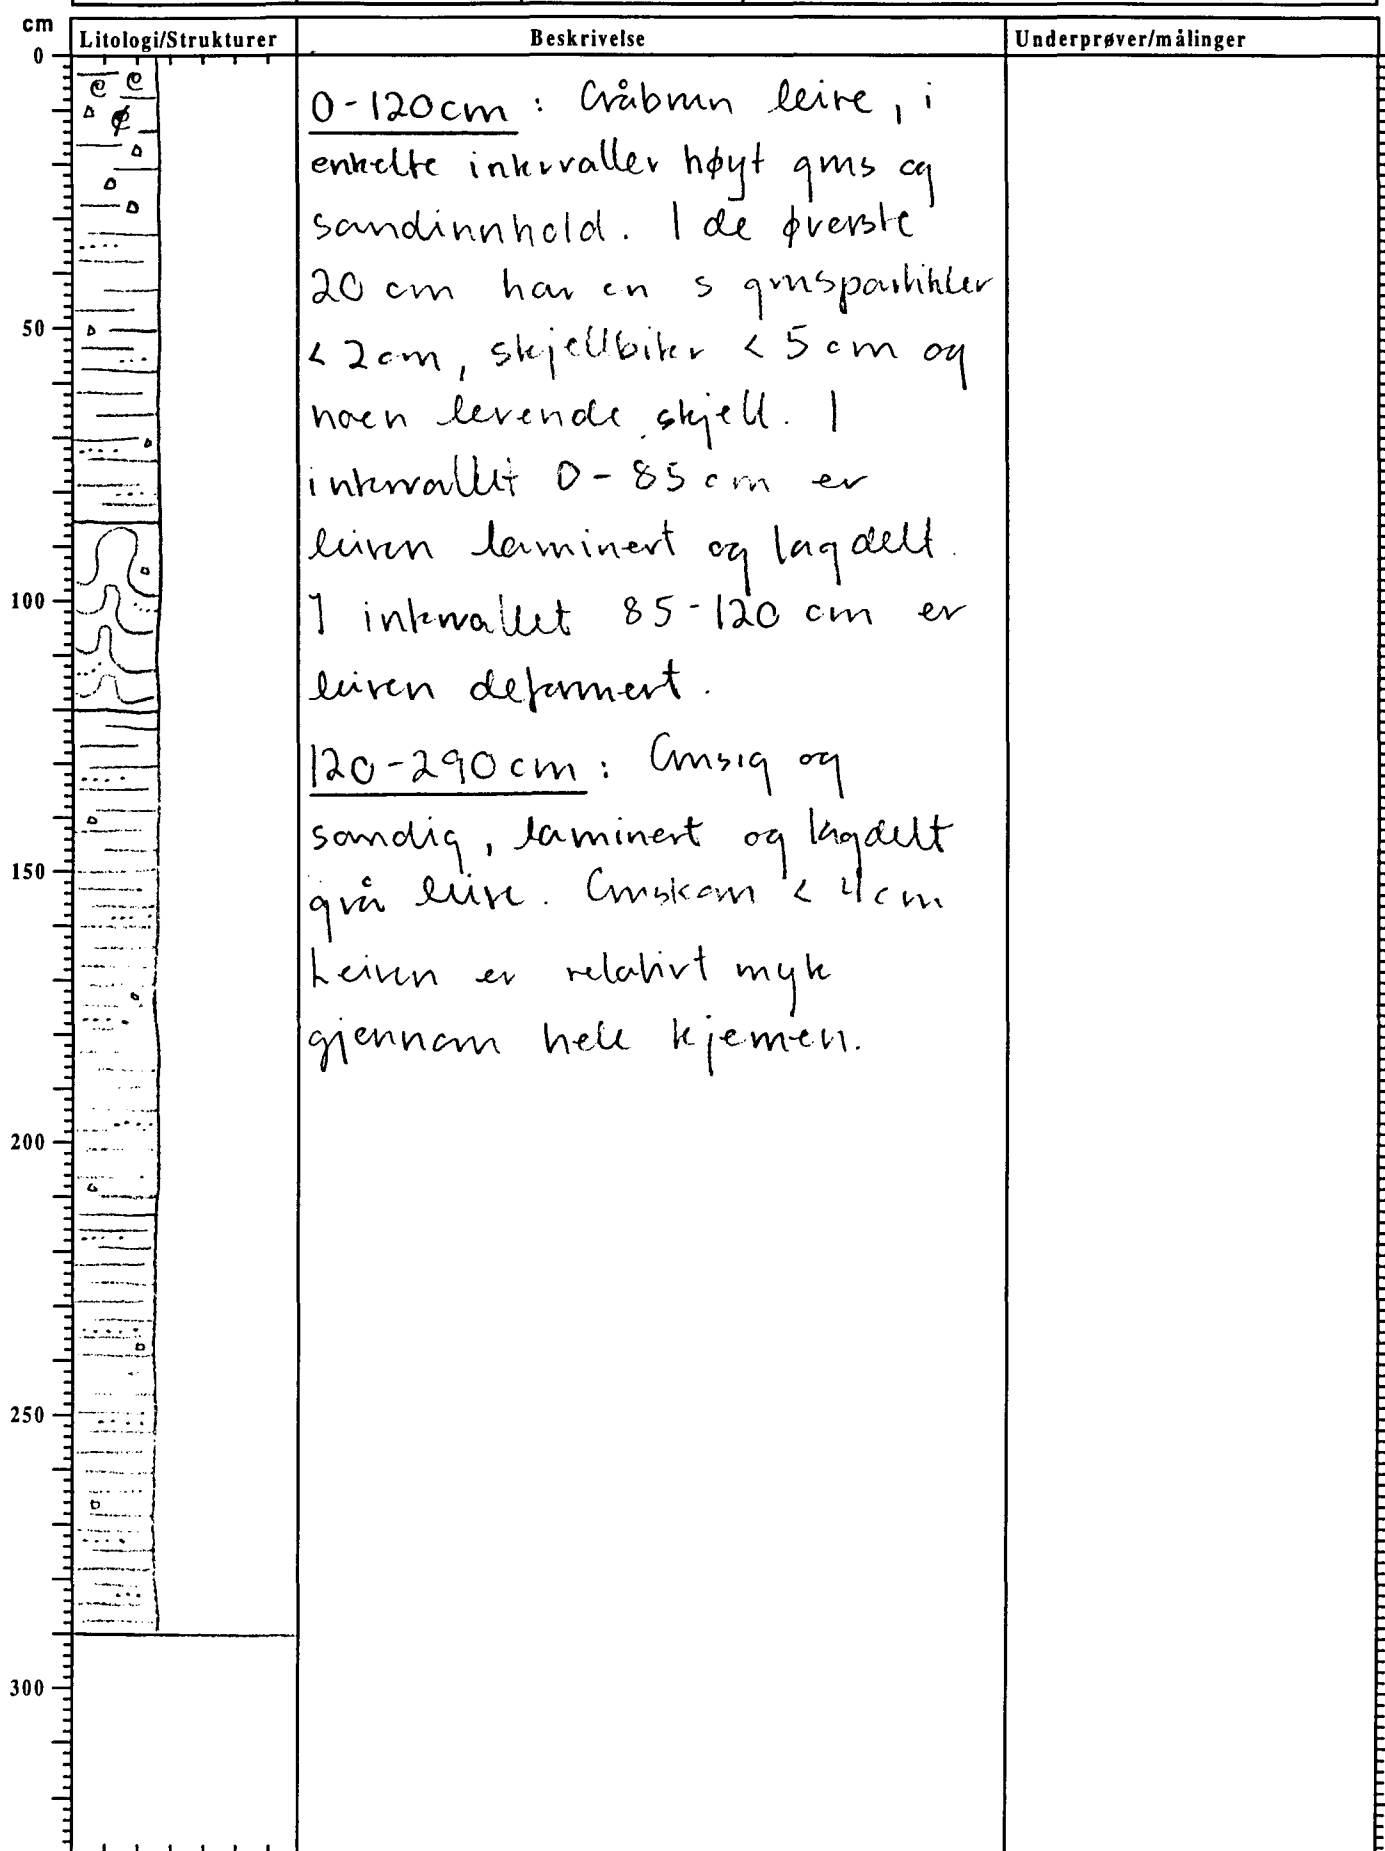 cm
Litologi/Strukturer
Beskrivelse
Underprøver/målinger
0
50
100
150
200
250
300
0-120cm : Gråbrun leire, i
enkelte intervaller høyt grus og
sandinnhold. I de øverste
20 cm har en s gruspartikler
< 2cm, skjellbiter < 5 cm og
noen levende skjell. I
intervallet 0-85 cm er
leiren laminert og lagdelt.
I intervallet 85-120 cm er
leiren deformert.
120-290cm : Grusig og
sandig, laminert og lagdelt
grå leire. Gruskorn < 4cm
Leiren er relativt myk
gjennom hele kjernen.